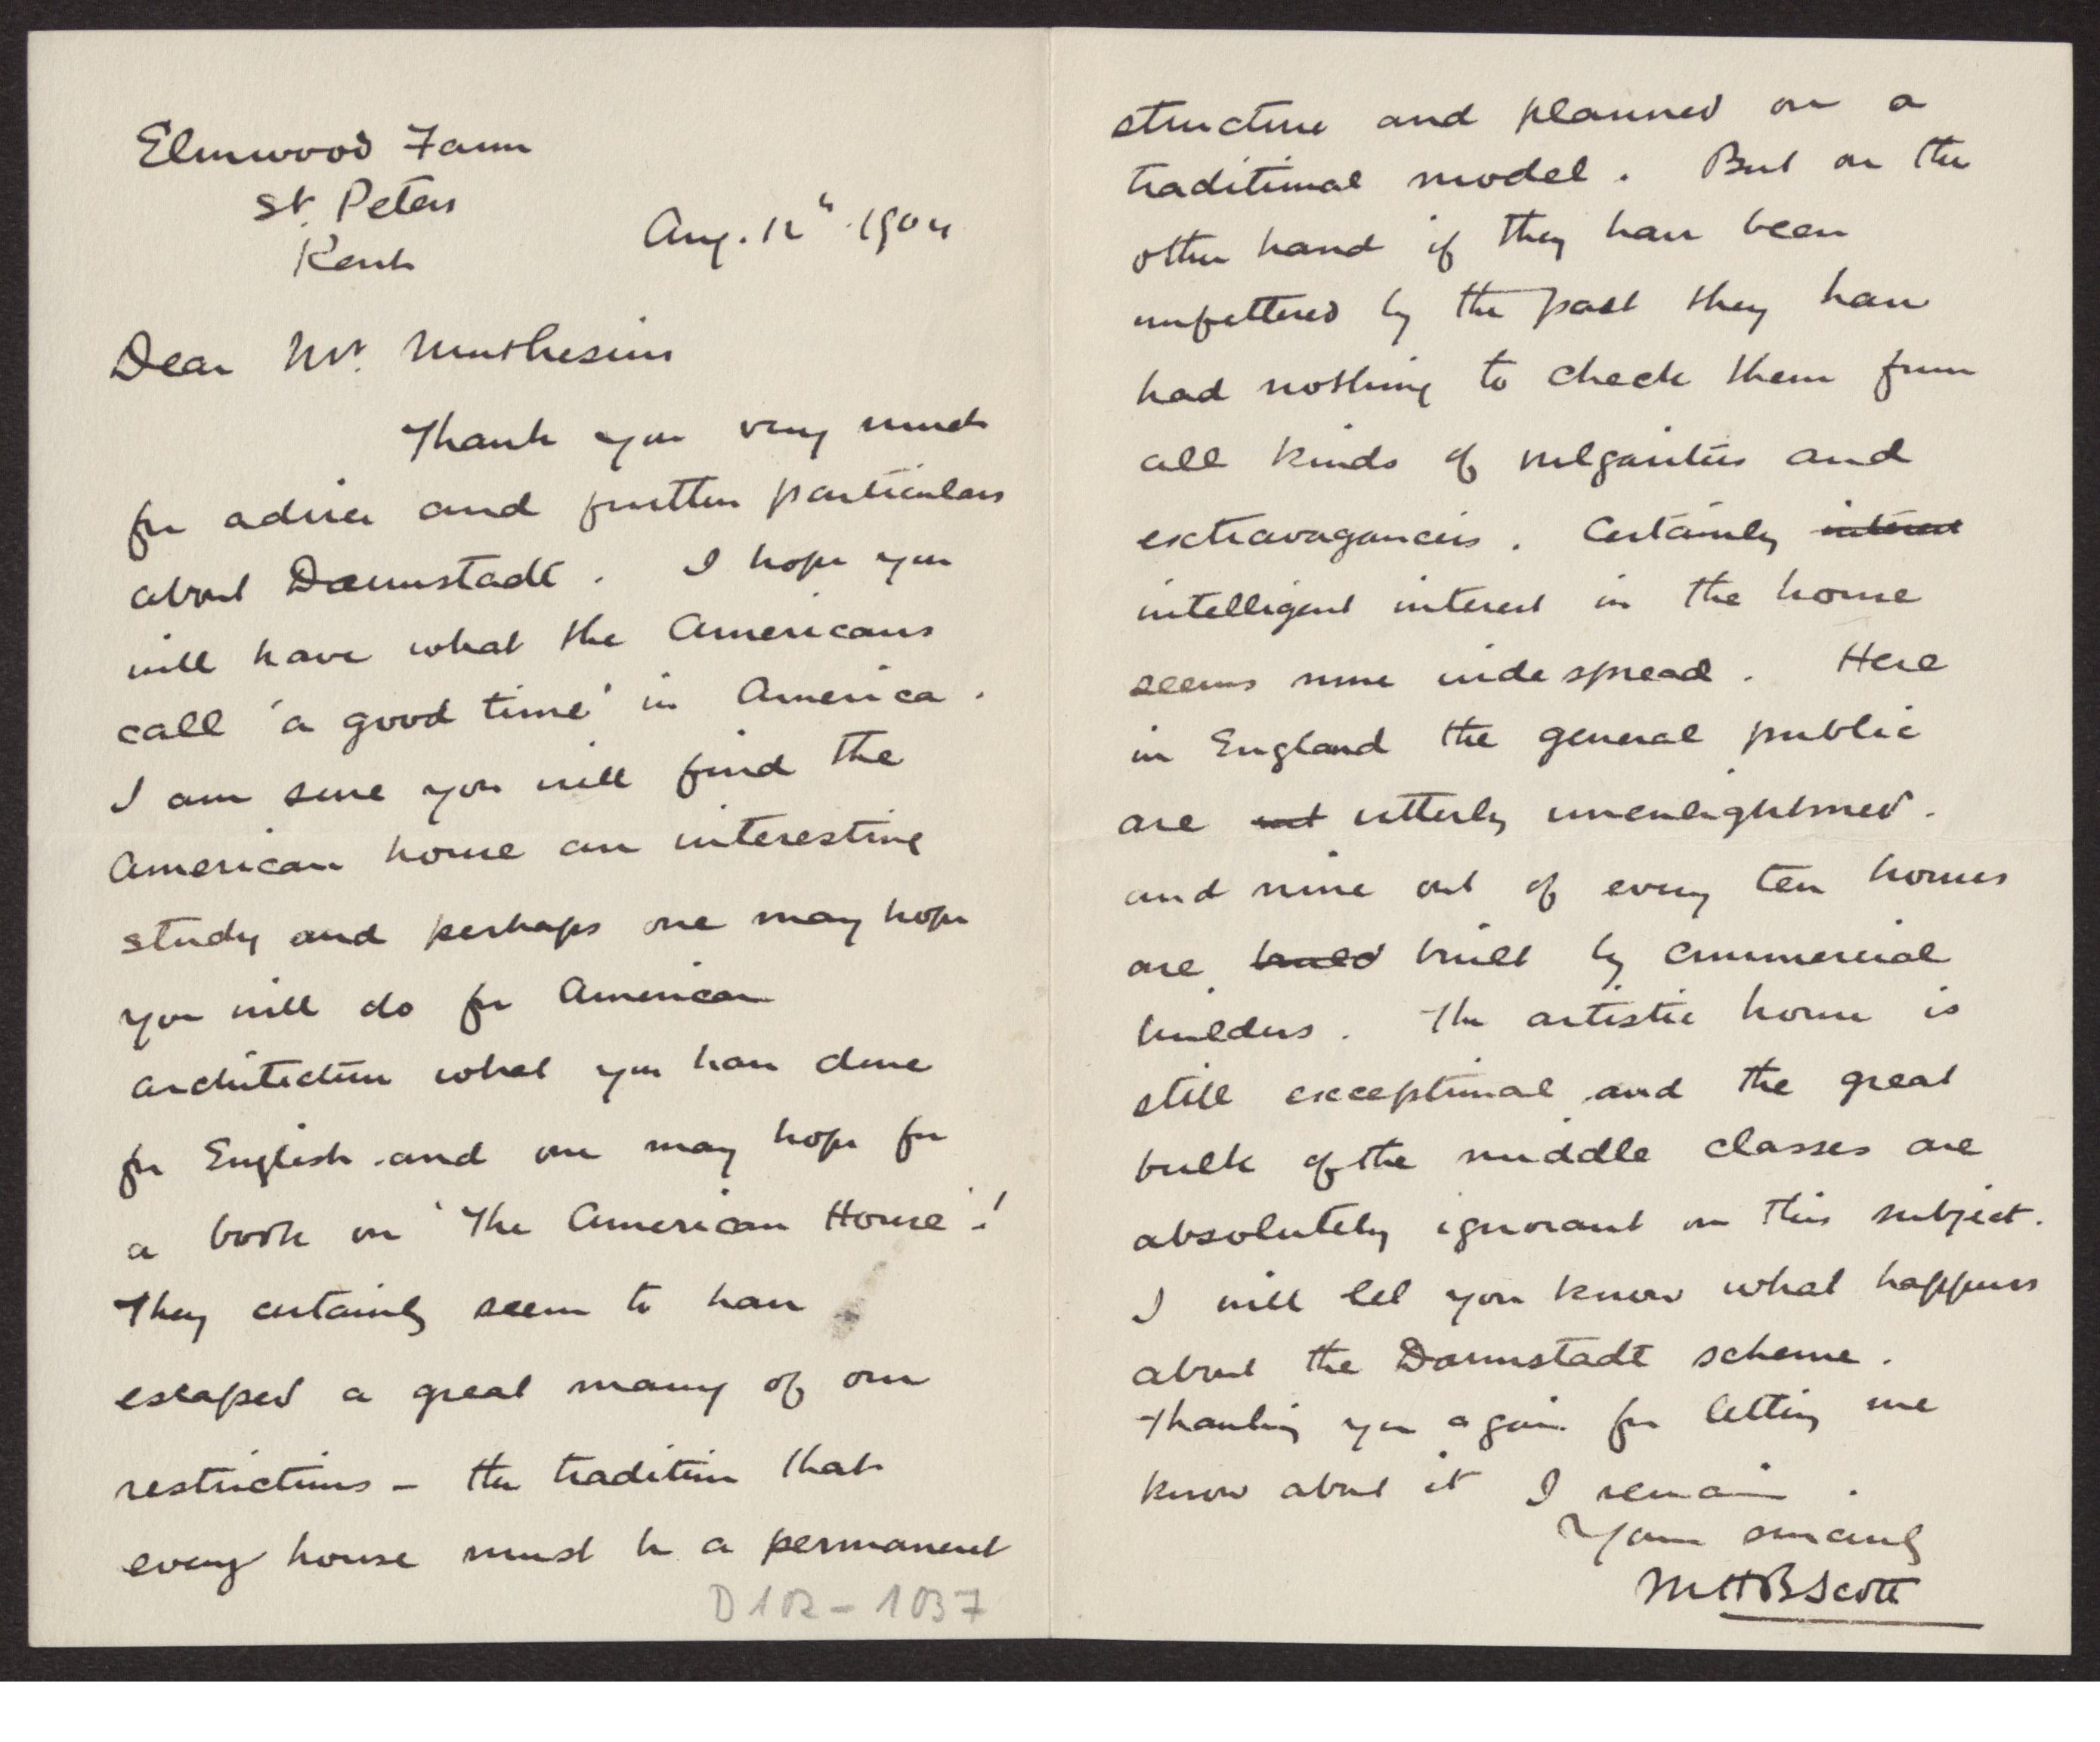 Elmwood Farm
St. Peters
Kent
Aug. 12th 1904
Dear Mr. Muthesius
Thank you very much
for advice and further particulars
about Darmstadt. I hope you
will have what the Americans
call 'a good time' in America.
I am sure you will find the
American house an interesting
study and perhaps one may hope
you will do for American
architecture what you have done
for English and one may hope for
a book on 'The American House'!
They certainly seem to have
escaped a great many of our
restrictions - the tradition that
every house must be a permanent
D 102 - 1037
structure and planned on a
traditional model. But on the
other hand if they have been
unfettered by the past they have
had nothing to check them from
all kinds of vulgarities and
extravagancies. Certainly interest
intelligent interest in the home
seems more wide spread. Here
in England the general public
are not utterly unenlightened.
and nine out of every ten homes
are build built by commercial
builders. The artistic home is
still exceptional and the great
bulk of the middle classes are
absolutely ignorant on this subject.
I will let you know what happens
about the Darmstadt scheme.
Thanking you again for letting me
know about it I remain.
Yours sincerely
MHBScott